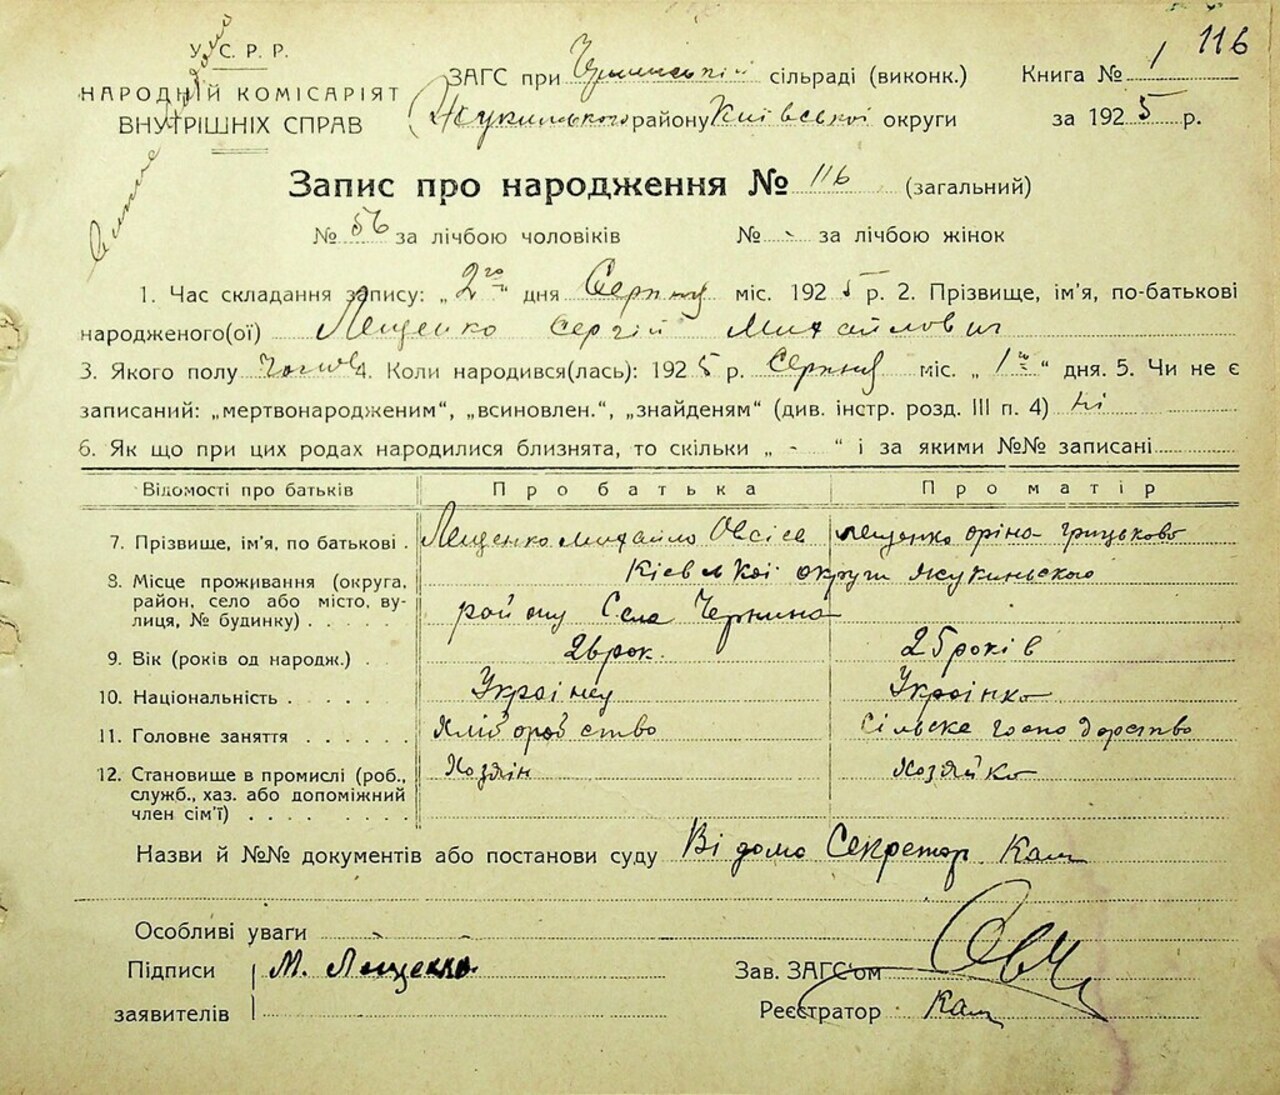 116
У. С. Р. Р.
НАРОДНІЙ КОМІСАРІЯТ
ВНУТРІШНІХ СПРАВ
ЗАГС при сільраді (виконк.)
району Київської округи
Книга № 1
за 1925 р.
Запис про народження № 116 (загальний)
№ 56 за лічбою чоловіків № - за лічбою жінок
1. Час складання запису: „2го" дня Серпня міс. 1925 р. 2. Прізвище, ім'я, по-батькові
народженого(ої) Лещенко Сергій Михайлович
3. Якого полу 4. Коли народився(лась): 1925 р. Серпня міс. „1го" дня. 5. Чи не є
записаний: „мертвонародженим", „всиновлен.", „знайденям" (див. інстр. розд. III п. 4) ні
6. Як що при цих родах народилися близнята, то скільки „ - " і за якими №№ записані
Відомості про батьків Про батька Про матір
7. Прізвище, ім'я, по батькові . Лещенко михайло Овсієв Лещенко оріна грицьково
8. Місце проживання (округа, район, село або місто, вулиця, № будинку) . . . . . округи
району Села Чернина
9. Вік (років од народж.) . 26 рок. 25 років
10. Національність . . . . Українец Українко
11. Головне заняття . . . . . . Хліборобство сільске господорство
12. Становище в промислі (роб., служб., хаз. або допоміжний член сім'ї) . . . . . . . . Хозяін Хозяйко
Назви й №№ документів або постанови суду Відомо Секретор
Особливі уваги
Підписи М. Лещенко
заявителів
Зав. ЗАГС'ом
Реєстратор